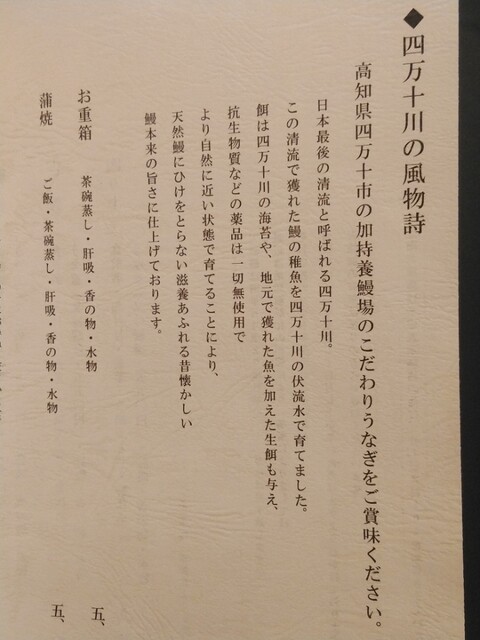 ◆四万十川の風物詩
高知県四万十市の加持養鰻場のこだわりうなぎをご賞味ください。
日本最後の清流と呼ばれる四万十川。
この清流で獲れた鰻の稚魚を四万十川の伏流水で育てました。
餌は四万十川の海苔や、地元で獲れた魚を加えた生餌も与え、
抗生物質などの薬品は一切無使用で
より自然に近い状態で育てることにより、
天然鰻にひけをとらない滋養あふれる昔懐かしい
鰻本来の旨さに仕上げております。
お重箱 茶碗蒸し・肝吸・香の物・水物 五、
蒲焼 ご飯・茶碗蒸し・肝吸・香の物・水物 五、